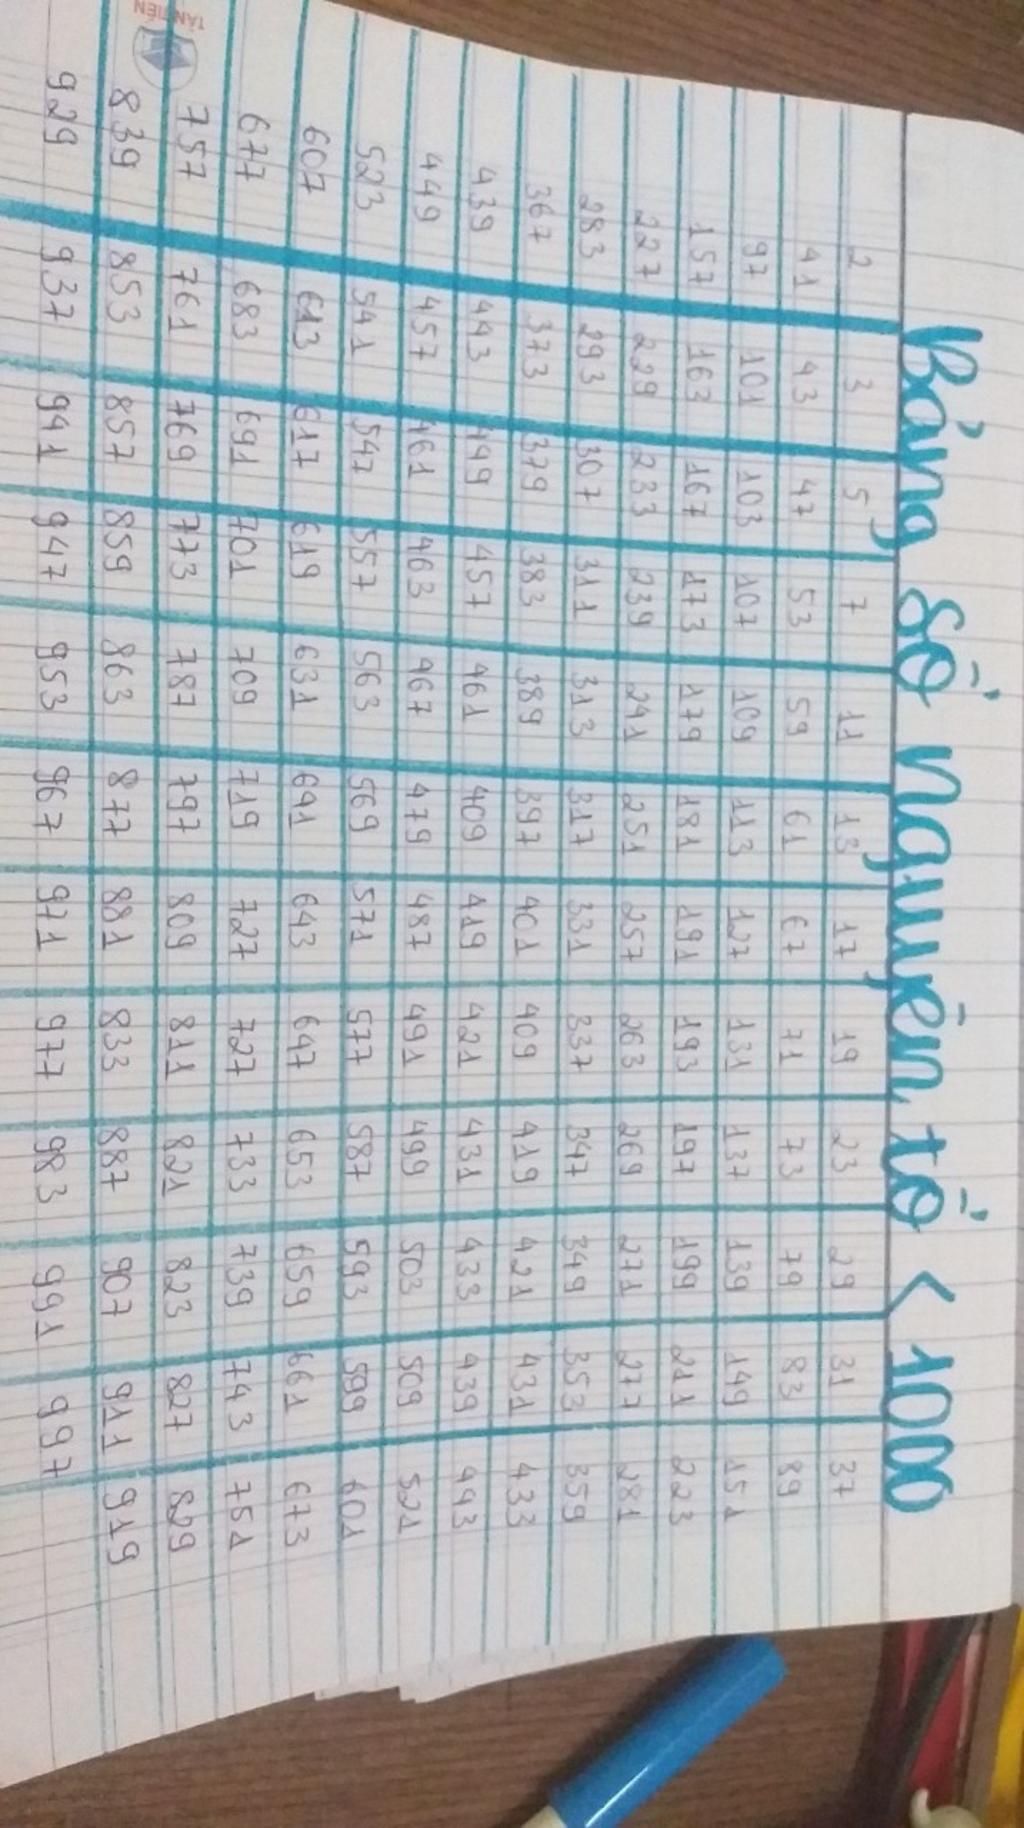 Bảng số nguyên tố < 1000
2 3 5 7 11 13 17 19 23 29 31 37
41 43 47 53 59 61 67 71 73 79 83 89
97 101 103 107 109 113 127 131 137 139 149 151
157 163 167 173 179 181 191 193 197 199 211 223
227 229 233 239 241 251 257 263 269 271 277 281
283 293 307 311 313 317 331 337 347 349 353 359
367 373 379 383 389 397 401 409 419 421 431 433
439 443 449 457 461 409 419 421 431 433 439 443
449 457 461 463 467 479 487 491 499 503 509 521
523 541 547 557 563 569 571 577 587 593 599 601
607 613 617 619 631 691 643 647 653 659 661 673
677 683 691 701 709 719 727 727 733 739 743 751
757 761 769 773 787 797 809 811 821 823 827 829
839 853 857 859 863 877 881 833 887 907 911 919
929 937 941 947 953 967 971 977 983 991 997
TÂN TIẾN